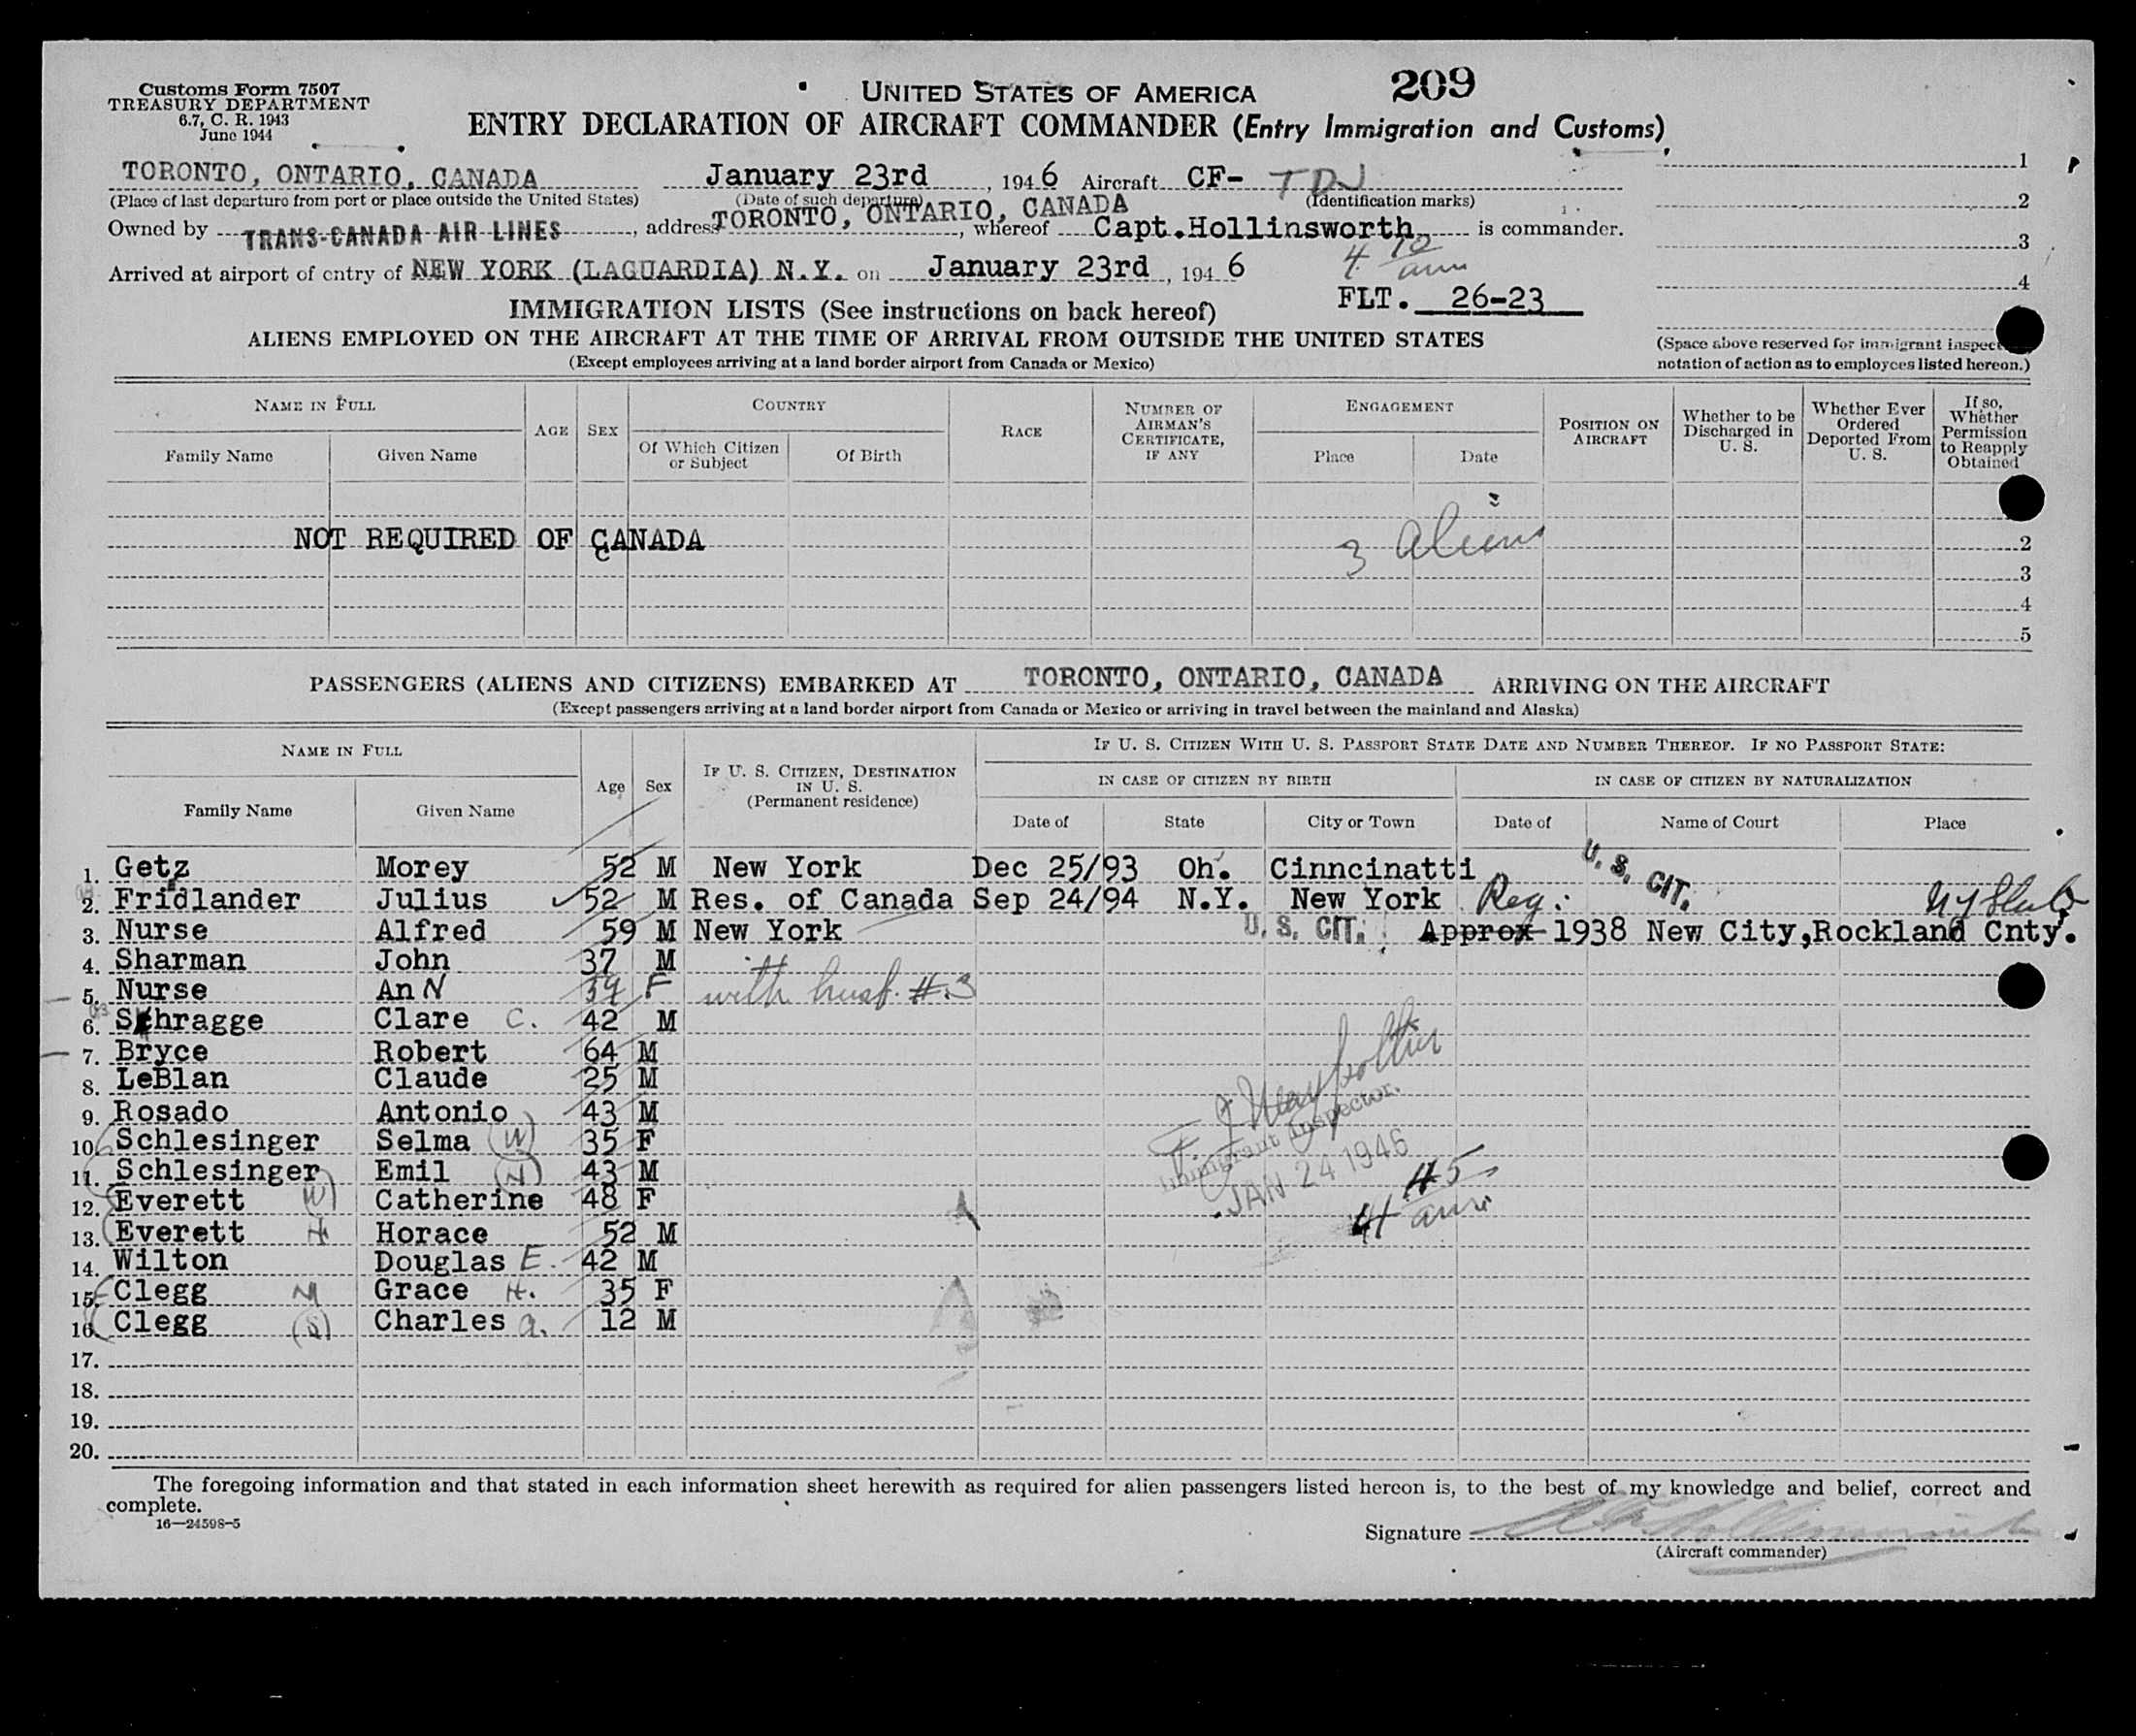 Customs Form 7507
TREASURY DEPARTMENT
6.7, C. R. 1943
June 1944
UNITED STATES OF AMERICA 209
ENTRY DECLARATION OF AIRCRAFT COMMANDER (Entry Immigration and Customs)
TORONTO, ONTARIO, CANADA January 23rd, 1946 Aircraft CF- TDJ 1
(Place of last departure from port or place outside the United States) (Date of such departure) (Identification marks) 2
Owned by TRANS-CANADA AIR LINES, address TORONTO, ONTARIO, CANADA, whereof Capt.Hollinsworth is commander. 3
Arrived at airport of entry of NEW YORK (LAGUARDIA) N.Y. on January 23rd, 1946 4 10 am 4
IMMIGRATION LISTS (See instructions on back hereof) FLT. 26-23
ALIENS EMPLOYED ON THE AIRCRAFT AT THE TIME OF ARRIVAL FROM OUTSIDE THE UNITED STATES
(Except employees arriving at a land border airport from Canada or Mexico)
(Space above reserved for immigrant
notation of action as to employees listed hereon.)
NAME IN FULL AGE SEX COUNTRY RACE NUMBER OF AIRMAN'S CERTIFICATE, IF ANY ENGAGEMENT POSITION ON AIRCRAFT Whether to be Discharged in U. S. Whether Ever Ordered Deported From U. S. If so, Whether Permission to Reapply Obtained
Family Name Given Name Of Which Citizen or Subject Of Birth Place Date
NOT REQUIRED OF CANADA 3 aliens 2
3
4
5
PASSENGERS (ALIENS AND CITIZENS) EMBARKED AT TORONTO, ONTARIO, CANADA ARRIVING ON THE AIRCRAFT
(Except passengers arriving at a land border airport from Canada or Mexico or arriving in travel between the mainland and Alaska)
NAME IN FULL Age Sex IF U. S. CITIZEN, DESTINATION IN U. S. (Permanent residence) IF U. S. CITIZEN WITH U. S. PASSPORT STATE DATE AND NUMBER THEREOF. IF NO PASSPORT STATE:
IN CASE OF CITIZEN BY BIRTH IN CASE OF CITIZEN BY NATURALIZATION
Family Name Given Name Date of State City or Town Date of Name of Court Place
1. Getz Morey 52 M New York Dec 25/93 Oh. Cinncinatti U. S. CIT.
2. Fridlander Julius 52 M Res. of Canada Sep 24/94 N.Y. New York Reg.
3. Nurse Alfred 59 M New York U. S. CIT. Approx 1938 New City,Rockland Cnty.
4. Sharman John 37 M
5. Nurse AnN 59 F with husb. #3
6. Schragge Clare C. 42 M
7. Bryce Robert 64 M
8. LeBlan Claude 25 M
9. Rosado Antonio 43 M
10. Schlesinger Selma (W) 35 F
11. Schlesinger Emil (H) 43 M
12. Everett (W) Catherine 48 F
13. Everett H Horace 52 M
14. Wilton Douglas E. 42 M
15. Clegg M Grace H. 35 F
16. Clegg (S) Charles A. 12 M
Immigrant Inspector.
JAN 24 1946
4 45 am
17.
18.
19.
20.
The foregoing information and that stated in each information sheet herewith as required for alien passengers listed hereon is, to the best of my knowledge and belief, correct and
complete.
16—24598-5
Signature
(Aircraft commander)